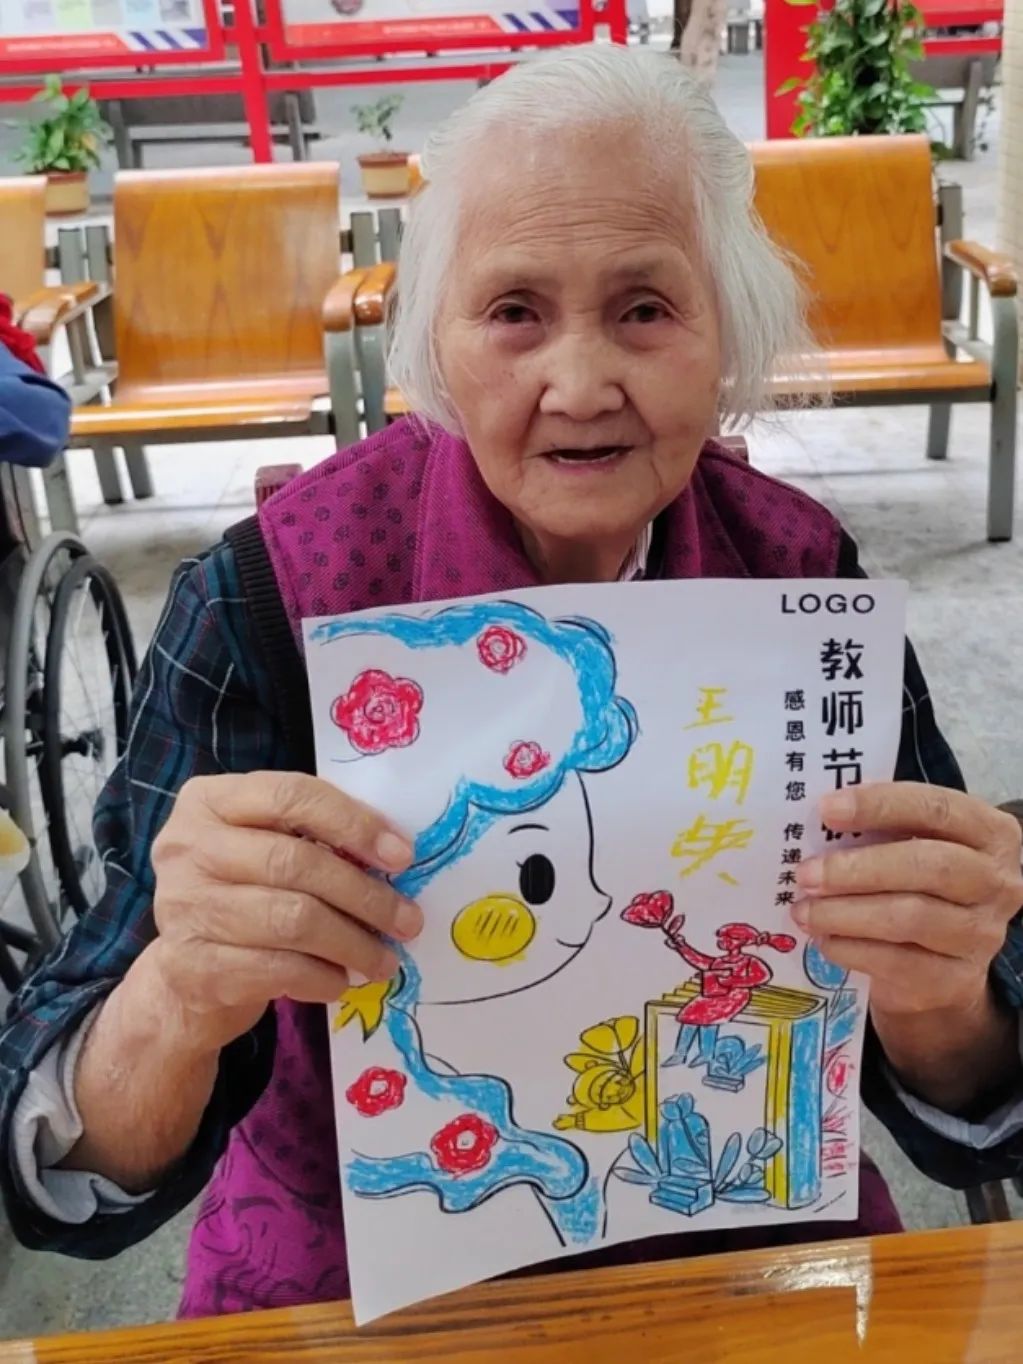 LOGO
教师节
感恩有您 传递未来
王明英